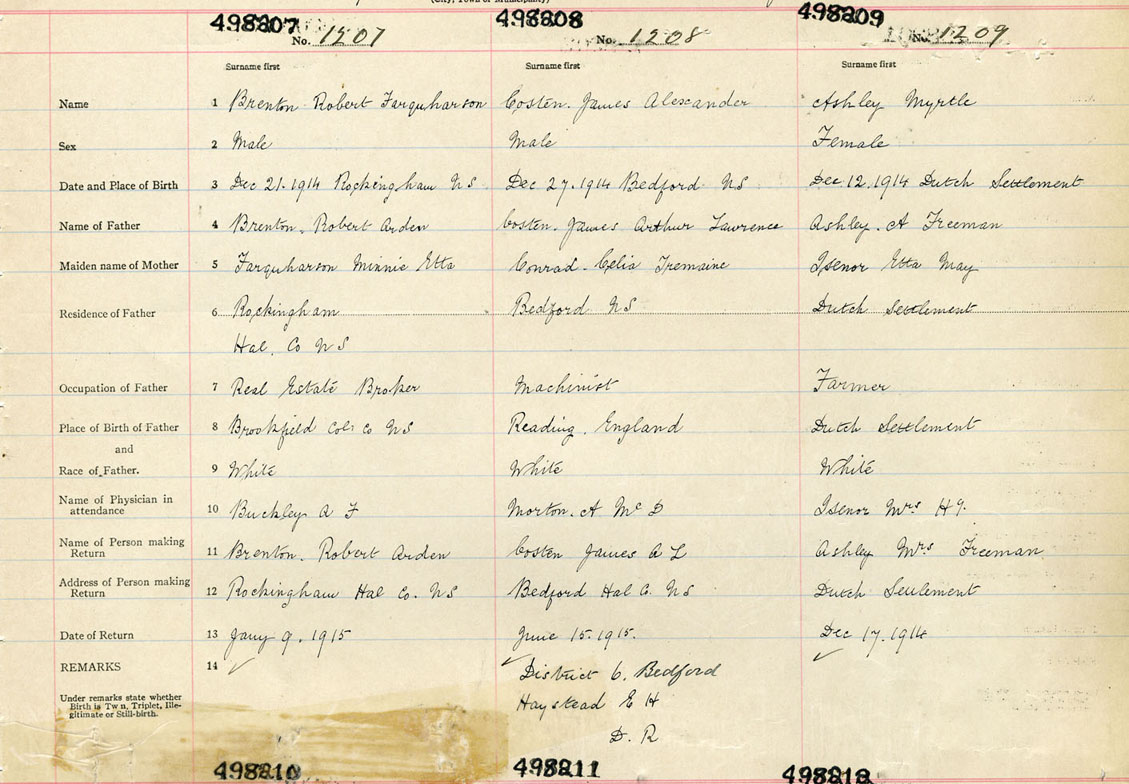 (City, Town or Municipality)
498207 498208 498209
No. 1207 No. 1208 No. 1209
Surname first Surname first Surname first
Name 1 Brenton Robert Farquharson Costen. James Alexander Ashley Myrtle
Sex 2 Male Male Female
Date and Place of Birth 3 Dec 21. 1914 Rockingham NS Dec 27. 1914 Bedford NS Dec 12. 1914 Dutch Settlement
Name of Father 4 Brenton, Robert Arden Costen. James Arthur Lawrence Ashley. A Freeman
Maiden name of Mother 5 Farquharson Minnie Etta Conrad. Celia Tremaine Isenor Etta May
Residence of Father 6 Rockingham Bedford NS Dutch Settlement
Hal. Co NS
Occupation of Father 7 Real Estate Broker Machinist Farmer
Place of Birth of Father 8 Brookfield Col. Co NS Reading. England Dutch Settlement
and
Race of Father. 9 White White White
Name of Physician in attendance 10 Buckley A F Morton. A McD Isenor Mrs H
Name of Person making Return 11 Brenton. Robert Arden Costen James A L Ashley Mrs Freeman.
Address of Person making Return 12 Rockingham Hal Co. NS Bedford Hal Co. NS Dutch Settlement
Date of Return 13 Jany 9. 1915 June 15. 1915. Dec 17. 1914
REMARKS 14 ✓ ✓ District 6. Bedford ✓
Under remarks state whether
Birth is Twin, Triplet, Ille-
gitimate or Still-birth.
Haystead E H
D. R
498210 498211 498212